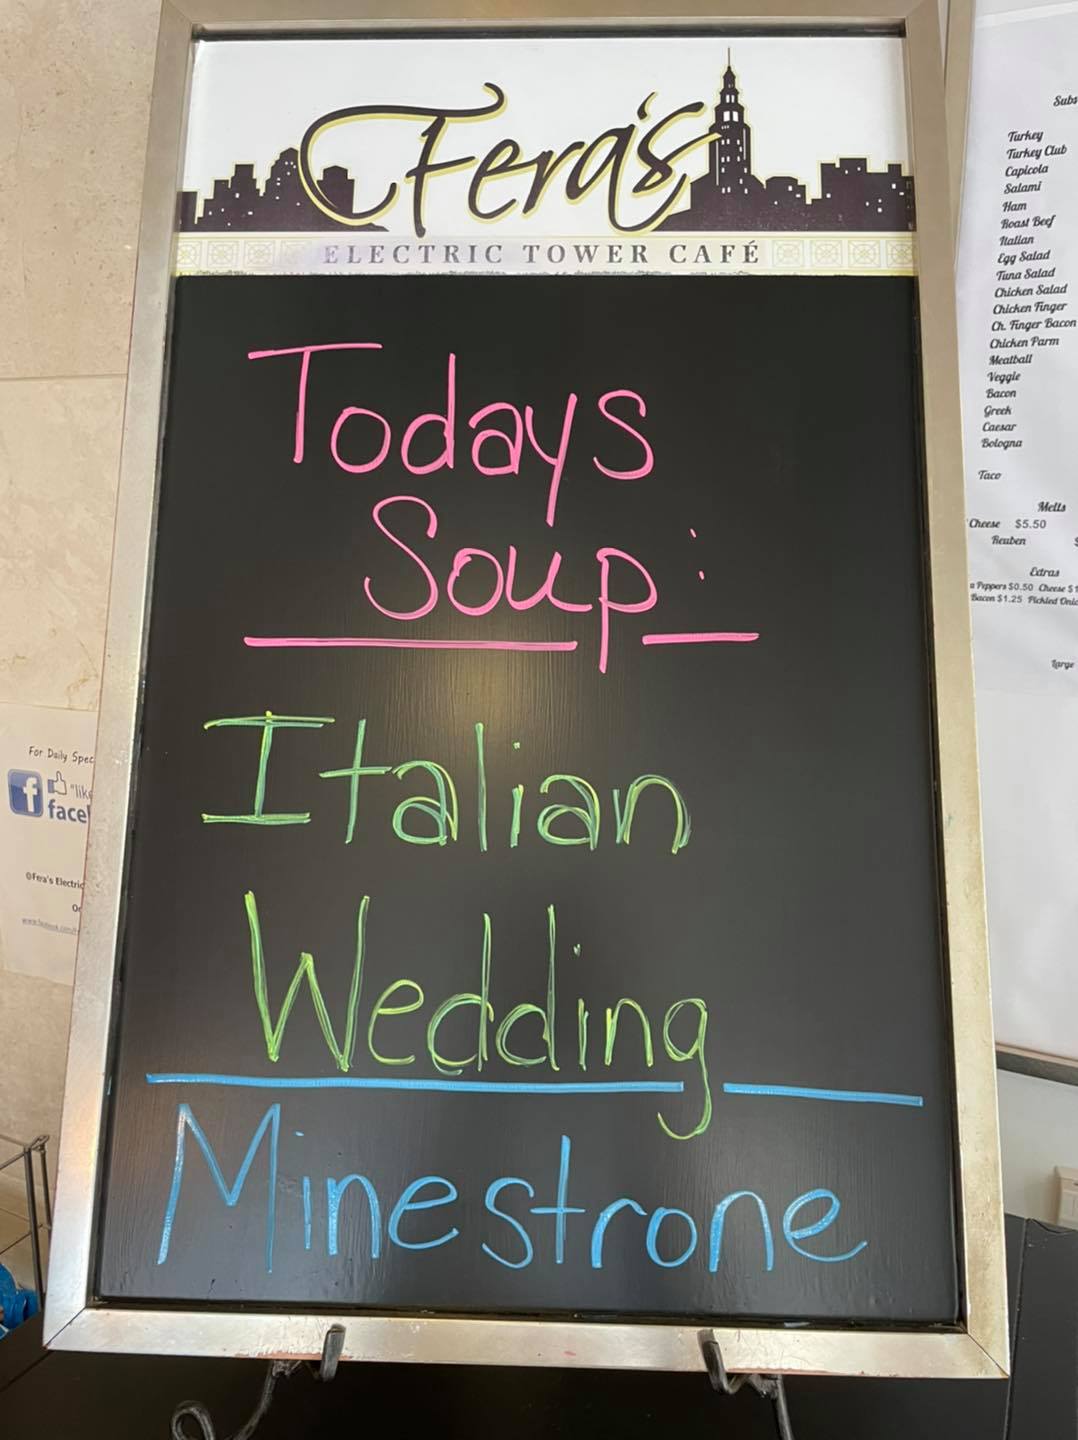 Fera's
ELECTRIC TOWER CAFÉ
Todays
Soup:
Italian
Wedding
Minestrone
Subs
Turkey
Turkey Club
Capicola
Salami
Ham
Roast Beef
Italian
Egg Salad
Tuna Salad
Chicken Salad
Chicken Finger
Ch. Finger Bacon
Chicken Parm
Meatball
Veggie
Bacon
Greek
Caesar
Bologna
Taco
Melts
Cheese $5.50
Reuben $
Extras
Peppers $0.50 Cheese $1
Bacon $1.25 Pickled
Large
For Daily
f
@Fera's